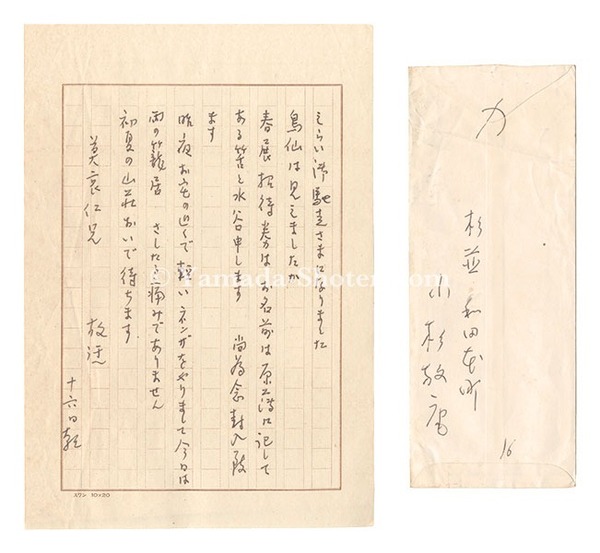 えらい御馳走さまになりました
鳥仙は見えましたか
春展招待券はお名前は原簿に記して
ある筈と水谷申します 尚為念封入致
ます
昨夜お宅の近くで軽いネンザをやりまして今日は
雨の籠居 さしたる痛みでありません
初夏の山荘おいで待ちます
美哀仁兄 放
十六日朝
スワン 10×20
杉並 和田本町
小杉放庵
16
© Yamada-Shoten.com